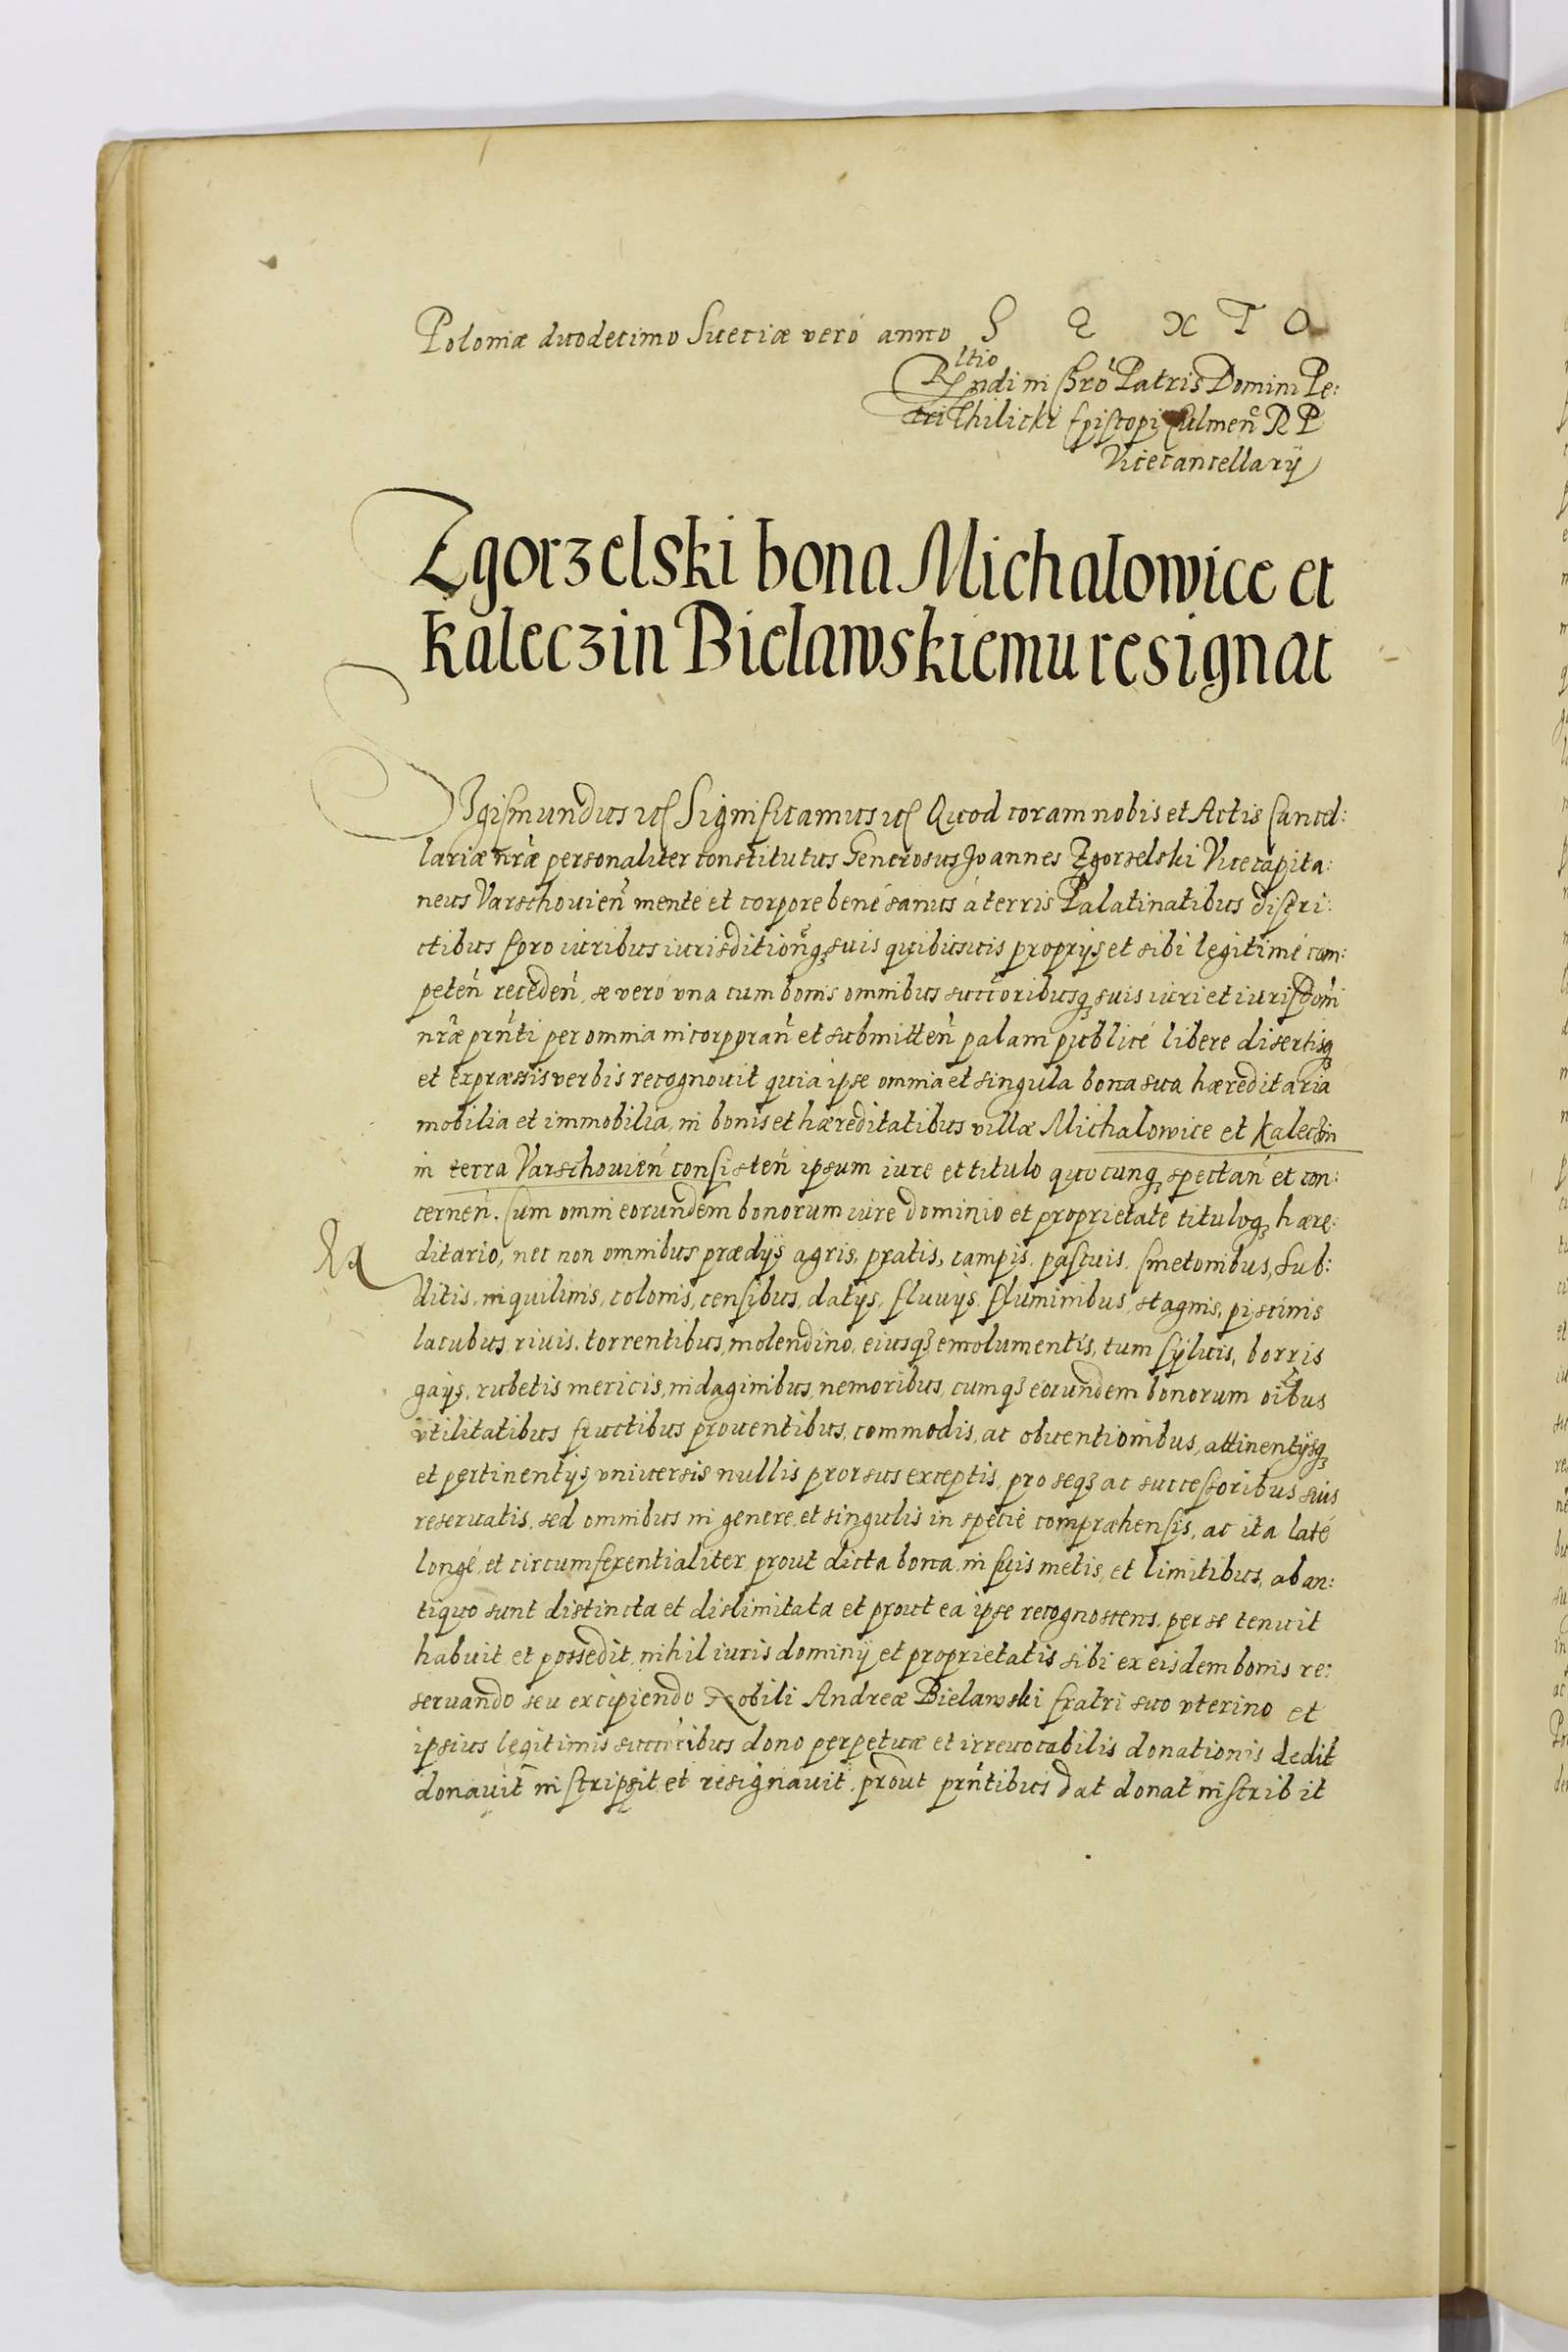 Poloniæ duodecimo Sueciæ verò anno S E X T O
Rltio
Rndi in Chrō Patris Domini Pe:
tri Thilicki Episcopi Culmen̄ R P
Vicecancellarÿ
Zgorzelski bona Michalowice et
Kaleczin Bielawskiemu resignat
SIgismundus etc Significamus etc Quod coram nobis et Actis Cancel:
lariæ nr̄æ personaliter constitutus Generosus Joannes Zgorzelski Vicecapita:
neus Varschouien̄ mente et corpore benè sanus à terris Palatinatibus distri:
ctibus foro iuribus iurisditionq₃ suis quibusuis proprijs et sibi legitimè com:
peten̄ receden̄, se verò vna cum bonis omnibus succ̄oribusq₃ suis iuri et iurisdōni
nr̄æ prn̄ti per omnia incorporan̄ et submitten̄ palam publicè libere disertisq₃
et expræssis verbis recognouit quia ipse omnia et singula bona sua hæreditaria
mobilia et immobilia, in bonis et hæreditatibus villæ Michalowice et Kaleczin
in terra Varschouien̄ consisten̄ ipsum iure et titulo quocunq₃ spectan̄ et con:
cernen̄. Cum omni eorundem bonorum iure dominio et proprietate tituloq₃ hære:
ditario, nec non omnibus prædijs agris, pratis, campis, pascuis, Cmetonibus, sub:
ditis, inquilinis, colonis, censibus, datijs, fluuijs, fluminibus, stagnis, piscinis
lacubus, riuis, torrentibus, molendino, eiusq₃ emolumentis, tum syluis, borris
gaijs, rubetis mericis, indaginibus, nemoribus, cumq₃ eorundem bonorum oībus
vtilitatibus fructibus prouentibus, commodis, ac obuentionibus, attinentijsq₃
et pertinentijs vniuersis nullis prorsus exceptis, pro seq₃ ac successoribus suis
reseruatis, sed omnibus in genere, et singulis in specie compræhensis, ac ita latè
longè, et circumferentialiter, prout dicta bona, in suis metis, et limitibus, ab an:
tiquo sunt distincta et dislimitata et prout ea ipse recognoscens, per se tenuit
habuit et possedit, nihil iuris dominij et proprietatis sibi ex eisdem bonis re:
seruando seu excipiendo Nobili Andreæ Bielawski fratri suo vterino et
ipsius legitimis succ̄oribus dono perpetuæ et irreuocabilis donationis dedit
donauit inscripsit et resignauit, prout prn̄tibus dat donat inscribit